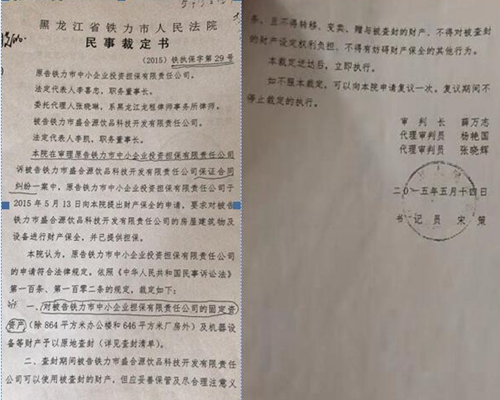 黑龙江省铁力市人民法院
民事裁定书
（2015）铁执保字第29号
原告铁力市中小企业投资担保有限责任公司。
法定代表人李喜忠，职务董事长。
委托代理人张晓琳，系黑龙江龙程律师事务所律师。
被告铁力市盛合源饮品科技开发有限责任公司。
法定代表人李凯，职务董事长。
本院在审理原告铁力市中小企业投资担保有限责任公司
诉被告铁力市盛合源饮品科技开发有限责任公司保证合同
纠纷一案中，原告铁力市中小企业投资担保有限责任公司于
2015年5月13日向本院提出财产保全的申请，要求对被告
铁力市盛合源饮品科技开发有限责任公司的房屋建筑物及
设备进行财产保全，并已提供担保。
本院认为，原告铁力市中小企业投资担保有限责任公司
的申请符合法律规定。依照《中华人民共和国民事诉讼法》
第一百条、第一百零二条的规定，裁定如下：
一、对被告铁力市中小企业担保有限责任公司的固定资
资产（除864平方米办公楼和646平方米厂房外）及机器设
备等财产予以原地查封（详见查封清单）。
二、查封期间被告铁力市盛合源饮品科技开发有限责任
公司可以使用被查封的财产，但应妥善保管及尽合理注意义
务，且不得转移、变卖、赠与被查封的财产、不得对被查封
的财产设定权利负担、不得有妨碍财产保全的其他行为。
本裁定送达后，立即执行。
如不服本裁定，可以向本院申请复议一次，复议期间不
停止裁定的执行。
审 判 长 薛万志
代理审判员 杨艳国
代理审判员 张晓辉
二〇一五年五月十四日
书 记 员 宋 策